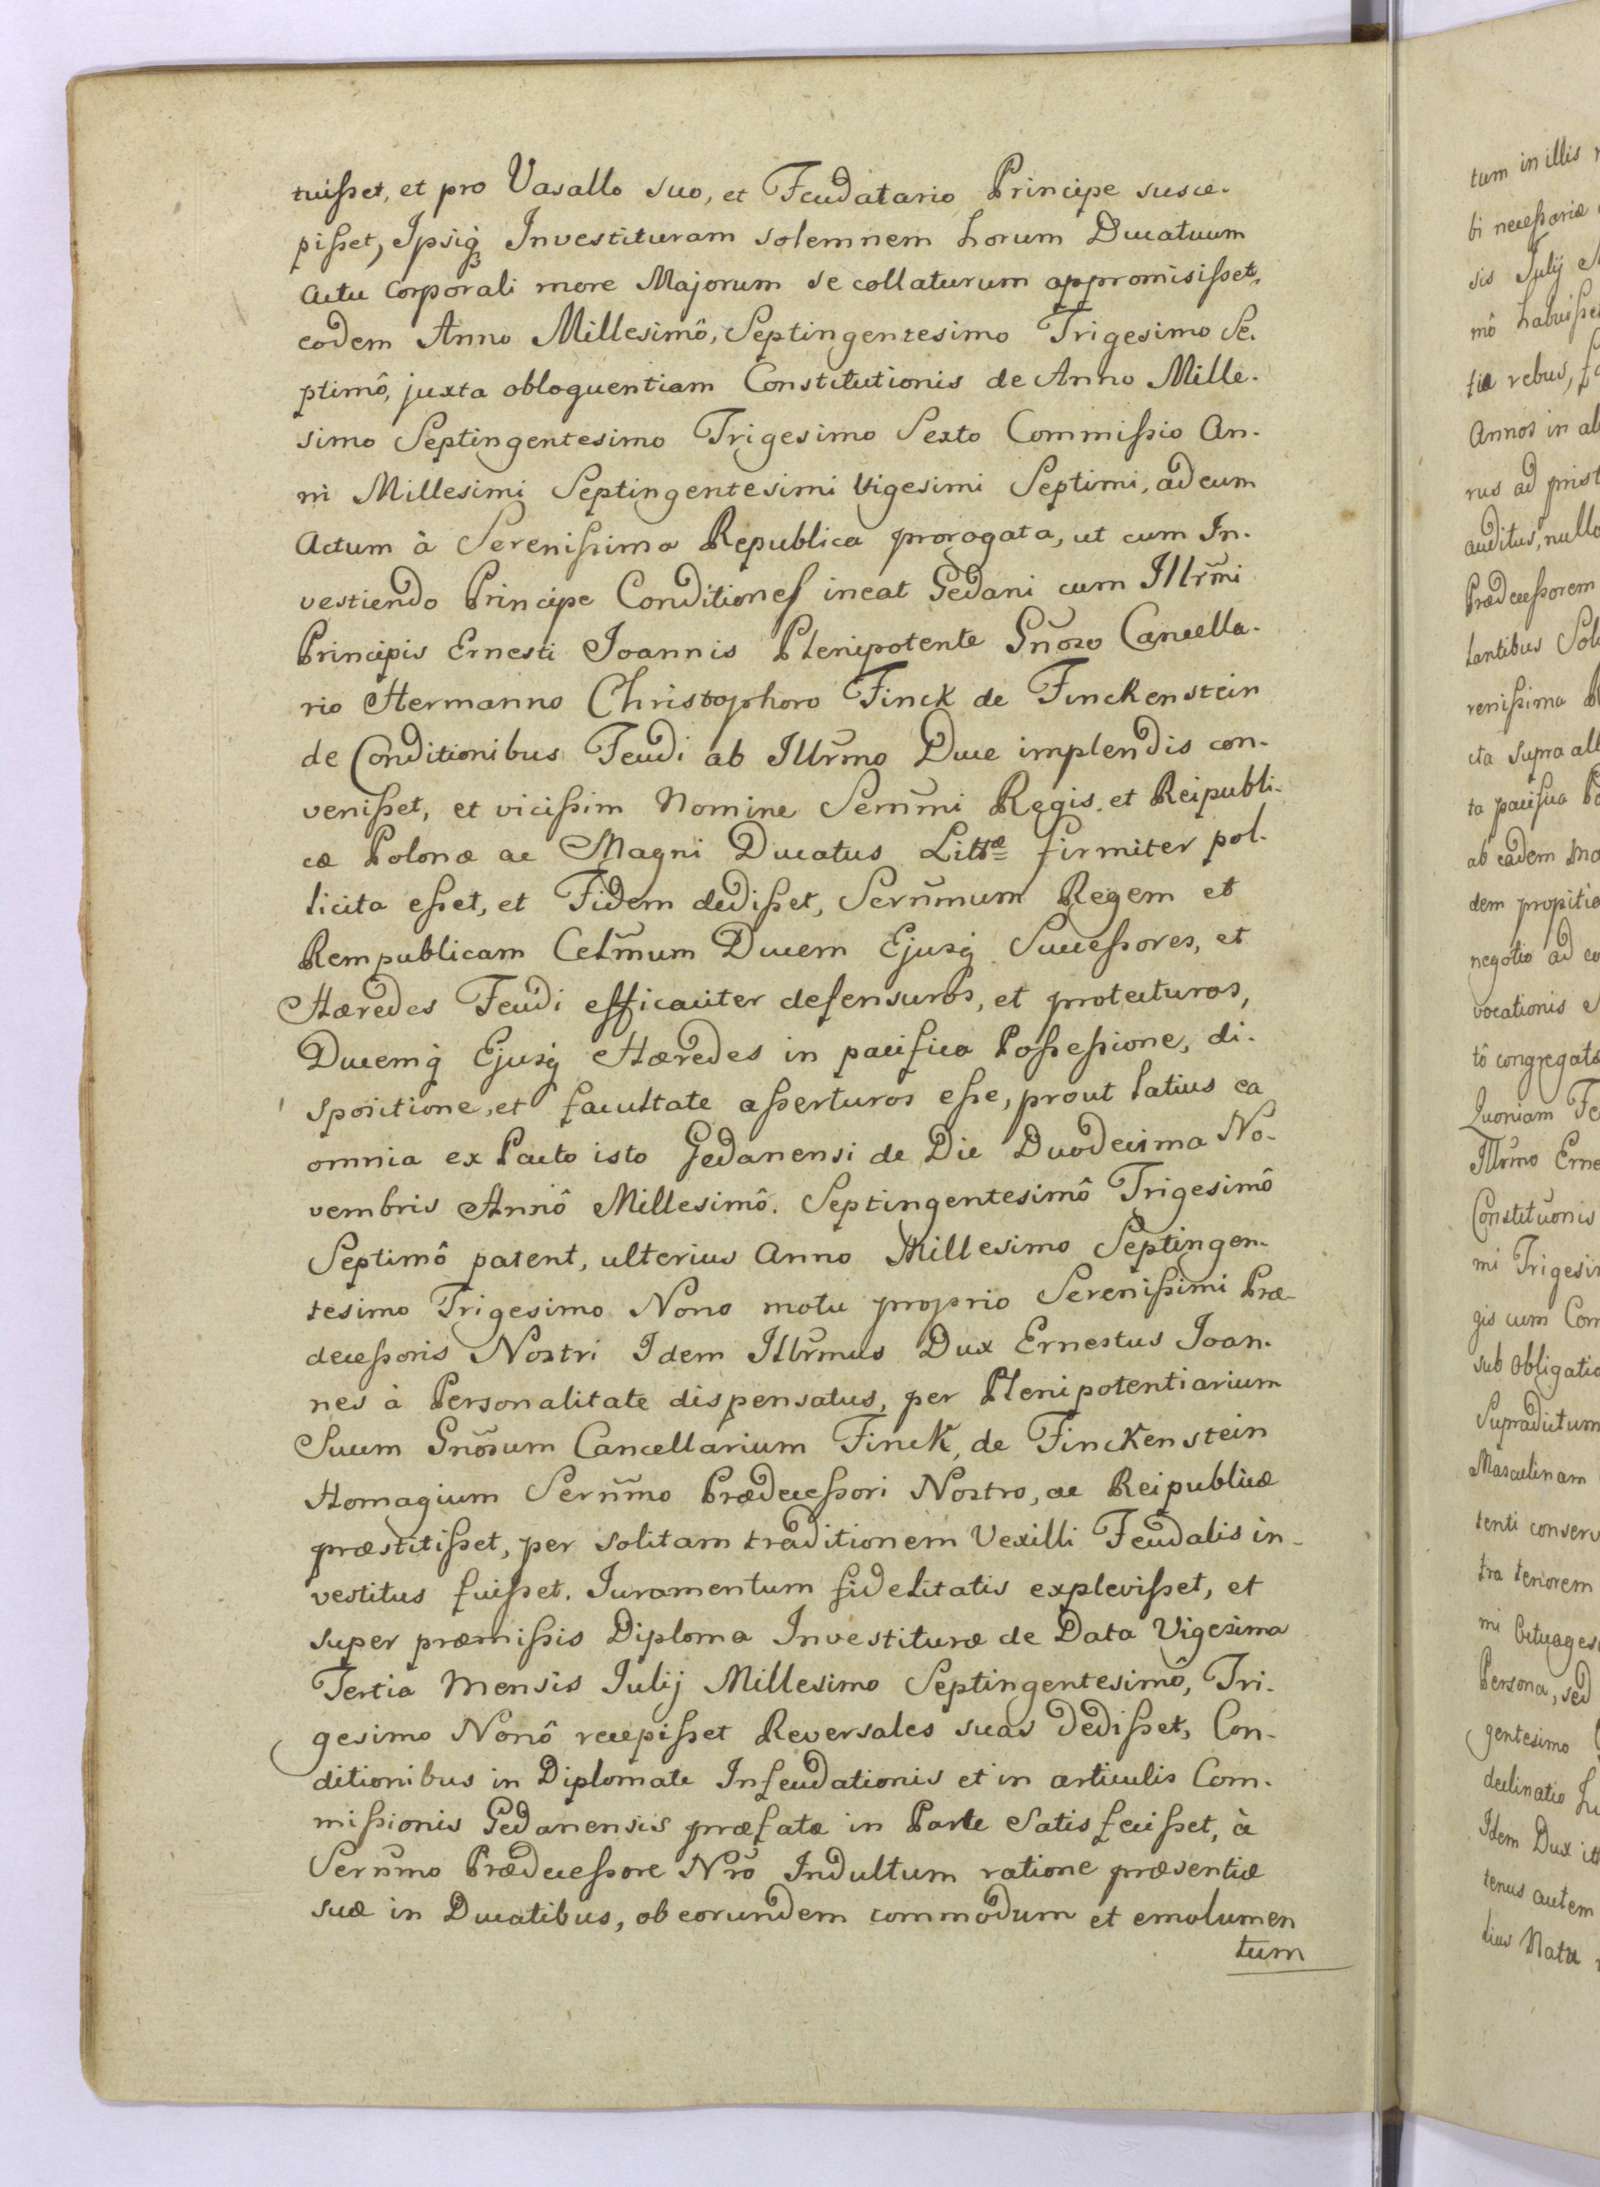 tuißet, et pro Vasallo suo, et Feudatario Principe susce-
pißet, Ipsiq Investituram solemnem horum Ducatuum
actu corporali more Majorum se collaturum appromisißet,
eodem Anno Millesimô, Septingentesimo Trigesimo Se-
ptimô, juxta obloquentiam Constitutionis de Anno Mille-
simo Septingentesimo Trigesimo Sexto Commißio An-
ni Millesimi Septingentesimi Vigesimi Septimi, ad eum
Actum à Serenißima Republica prorogata, ut cum In-
vestiendo Principe Conditiones ineat Gedani cum Illr̃mi
Principis Ernesti Joannis Plenipotente Gñoso Cancella-
rio Hermanno Christophoro Finck de Finckenstein
de Conditionibus Feudi ab Illr̃mo Duce implendis con-
venißet, et vicißim Nomine Serñmi Regis et Reipubli-
cæ Polonæ ac Magni Ducatus Littæ firmiter pol-
licita eßet, et Fidem dedißet, Serñmum Regem et
Rempublicam Celm̃um Ducem Ejusq Succeßores, et
Hæredes Feudi efficaciter defensuros, et protecturos,
Ducemq Ejusq Hæredes in pacifica Poßeßione, di-
spositione, et facultate aßerturos eße, prout latius ea
omnia ex Pacto isto Gedanensi de Die Duodecima No-
vembris Annô Millesimô. Septingentesimô Trigesimô
Septimô patent, ulterius Anno Millesimo Septingen-
tesimo Trigesimo Nono motu proprio Serenißimi Præ-
deceßoris Nostri Idem Illr̃mus Dux Ernestus Joan-
nes à Personalitate dispensatus, per Plenipotentiarium
Suum Gñosum Cancellarium Finck, de Finckenstein
Homagium Serñmo Prædeceßori Nostro, ac Reipublicæ
præstitißet, per solitam traditionem Vexilli Feudalis in-
vestitus fuißet. Iuramentum fidelitatis explevißet, et
super præmißis Diploma Investituræ de Data Vigesima
Tertia Mensis Iulij Millesimo Septingentesimô, Tri-
gesimo Nonô recepißet Reversales suas dedißet, Con-
ditionibus in Diplomate Infeudationis et in articulis Com-
mißionis Gedanensis præfatæ in Parte Satisfecißet, à
Serñmo Prædeceßore Nrõ Indultum ratione præsentiæ
suæ in Ducatibus, ob eorundem commodum et emolumen
tum
tum in illis
bi neceßariæ
sis Julij
mô habuiße
tiæ rebus,
Annos in
rus ad
auditus, nullo
Prædeceßorem
lantibus
renißima
cta supra
ta
ab eadem
dem
negotio ad
vocationis
tô congregatô
Quoniam
Illr̃mo
Constituonis
mi
gis cum
sub
Supradictum
Masculinam
tenti
tra tenorem
mi
Persona, sed
gentesimo
declinatio
Idem Dux
tenus autem
Natu